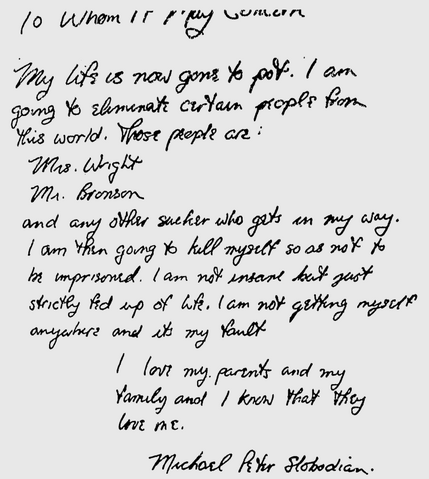 To Whom It May Concern
My life is now gone to pot. I am
going to eliminate certain people from
this world. Those people are:
Mrs. Wright
Mr. Bronson
and any other sucker who gets in my way.
I am then going to kill myself so as not to
be imprisoned. I am not insane but just
strictly fed up of life. I am not getting myself
anywhere and its my fault
I love my parents and my
family and I know that they
love me.
Michael Peter Slobodian.